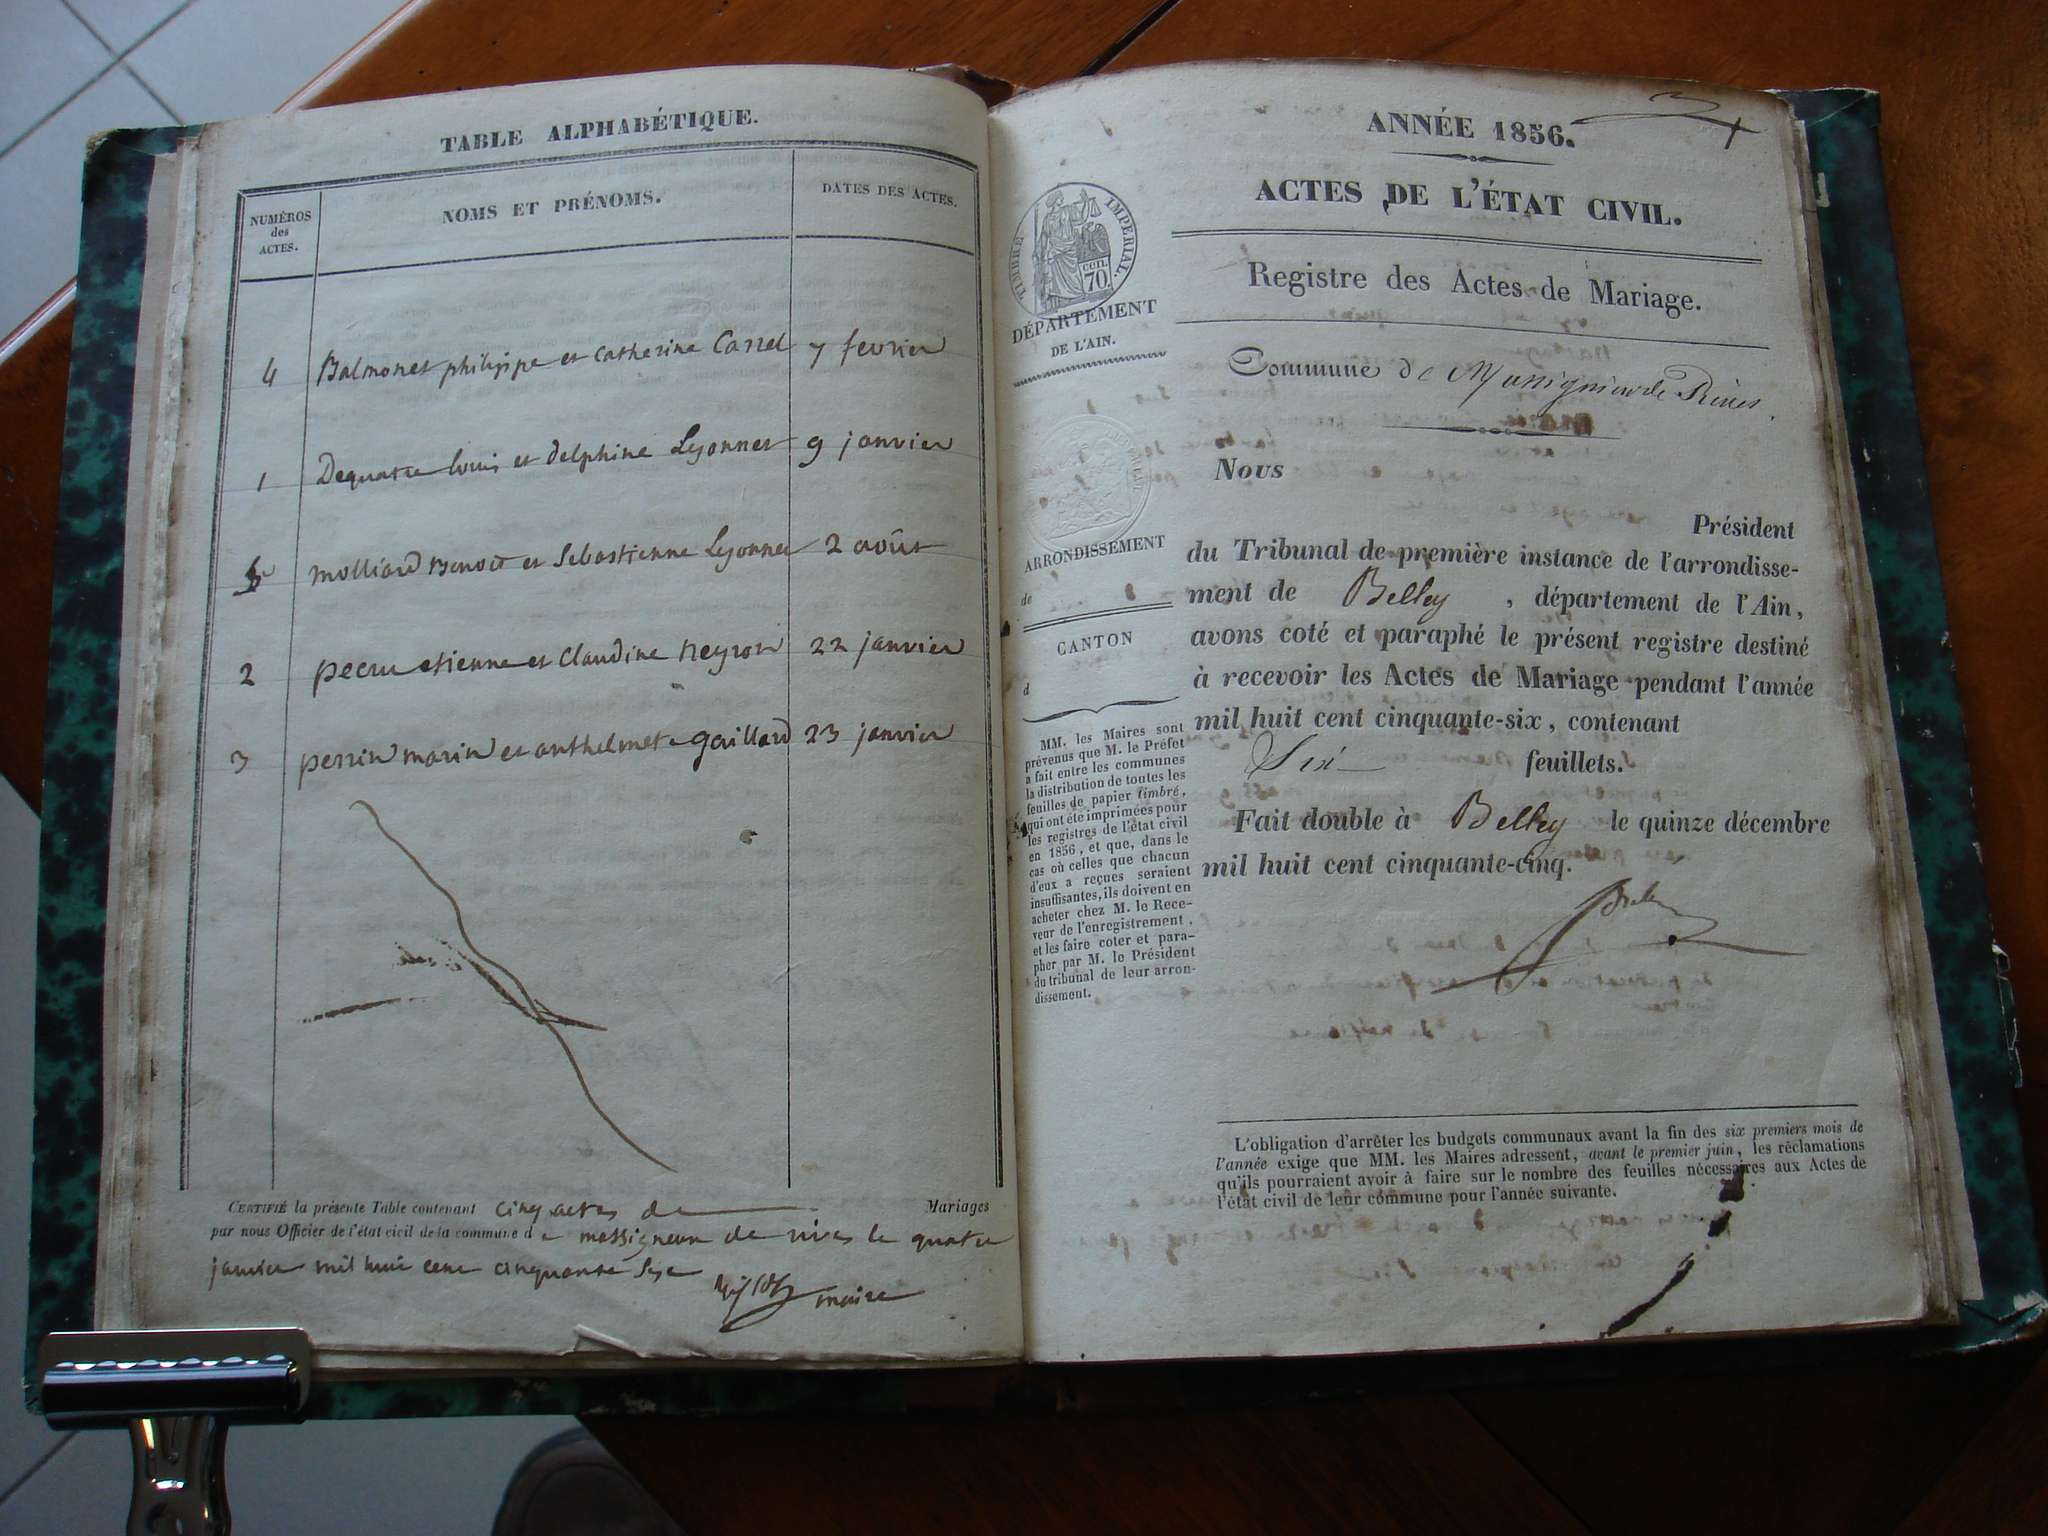 TABLE ALPHABÉTIQUE.
NUMÉROS
des
ACTES.
NOMS ET PRÉNOMS.
DATES DES ACTES.
4 Balmonet philippe et Catherine Carrel 7 fevrier
1 Dequatre louis et delphine Lyonnet 9 janvier
5 molliard Benoit et Sebastienne Lyonnet 2 août
2 pecru etienne et Claudine Neyron 22 janvier
3 perrin marin et anthelmete gaillard 23 janvier
CERTIFIÉ la présente Table contenant cinq actes de Mariages
par nous Officier de l'état civil de la commune de massigneux de rives le quatre
janvier mil huit cent cinquante Sept
maire
ANNÉE 1856.
ACTES DE L'ÉTAT CIVIL.
Registre des Actes de Mariage.
TIMBRE IMPÉRIAL.
CEN.
70.
DÉPARTEMENT
DE L'AIN.
Commune de Massignieu de Rives.
Nous
Président
du Tribunal de première instance de l'arrondisse-
ment de Belley, département de l'Ain,
avons coté et paraphé le présent registre destiné
à recevoir les Actes de Mariage pendant l'année
mil huit cent cinquante-six, contenant
Six feuillets.
Fait double à Belley le quinze décembre
mil huit cent cinquante-cinq.
ARRONDISSEMENT
de
CANTON
d
MM. les Maires sont
prévenus que M. le Préfet
a fait entre les communes
la distribution de toutes les
feuilles de papier timbré,
qui ont été imprimées pour
les registres de l'état civil
en 1856, et que, dans le
cas où celles que chacun
d'eux a reçues seraient
insuffisantes, ils doivent en
acheter chez M. le Rece-
veur de l'enregistrement,
et les faire coter et para-
pher par M. le Président
du tribunal de leur arron-
dissement.
L'obligation d'arrêter les budgets communaux avant la fin des six premiers mois de
l'année exige que MM. les Maires adressent, avant le premier juin, les réclamations
qu'ils pourraient avoir à faire sur le nombre des feuilles nécessaires aux Actes de
l'état civil de leur commune pour l'année suivante.